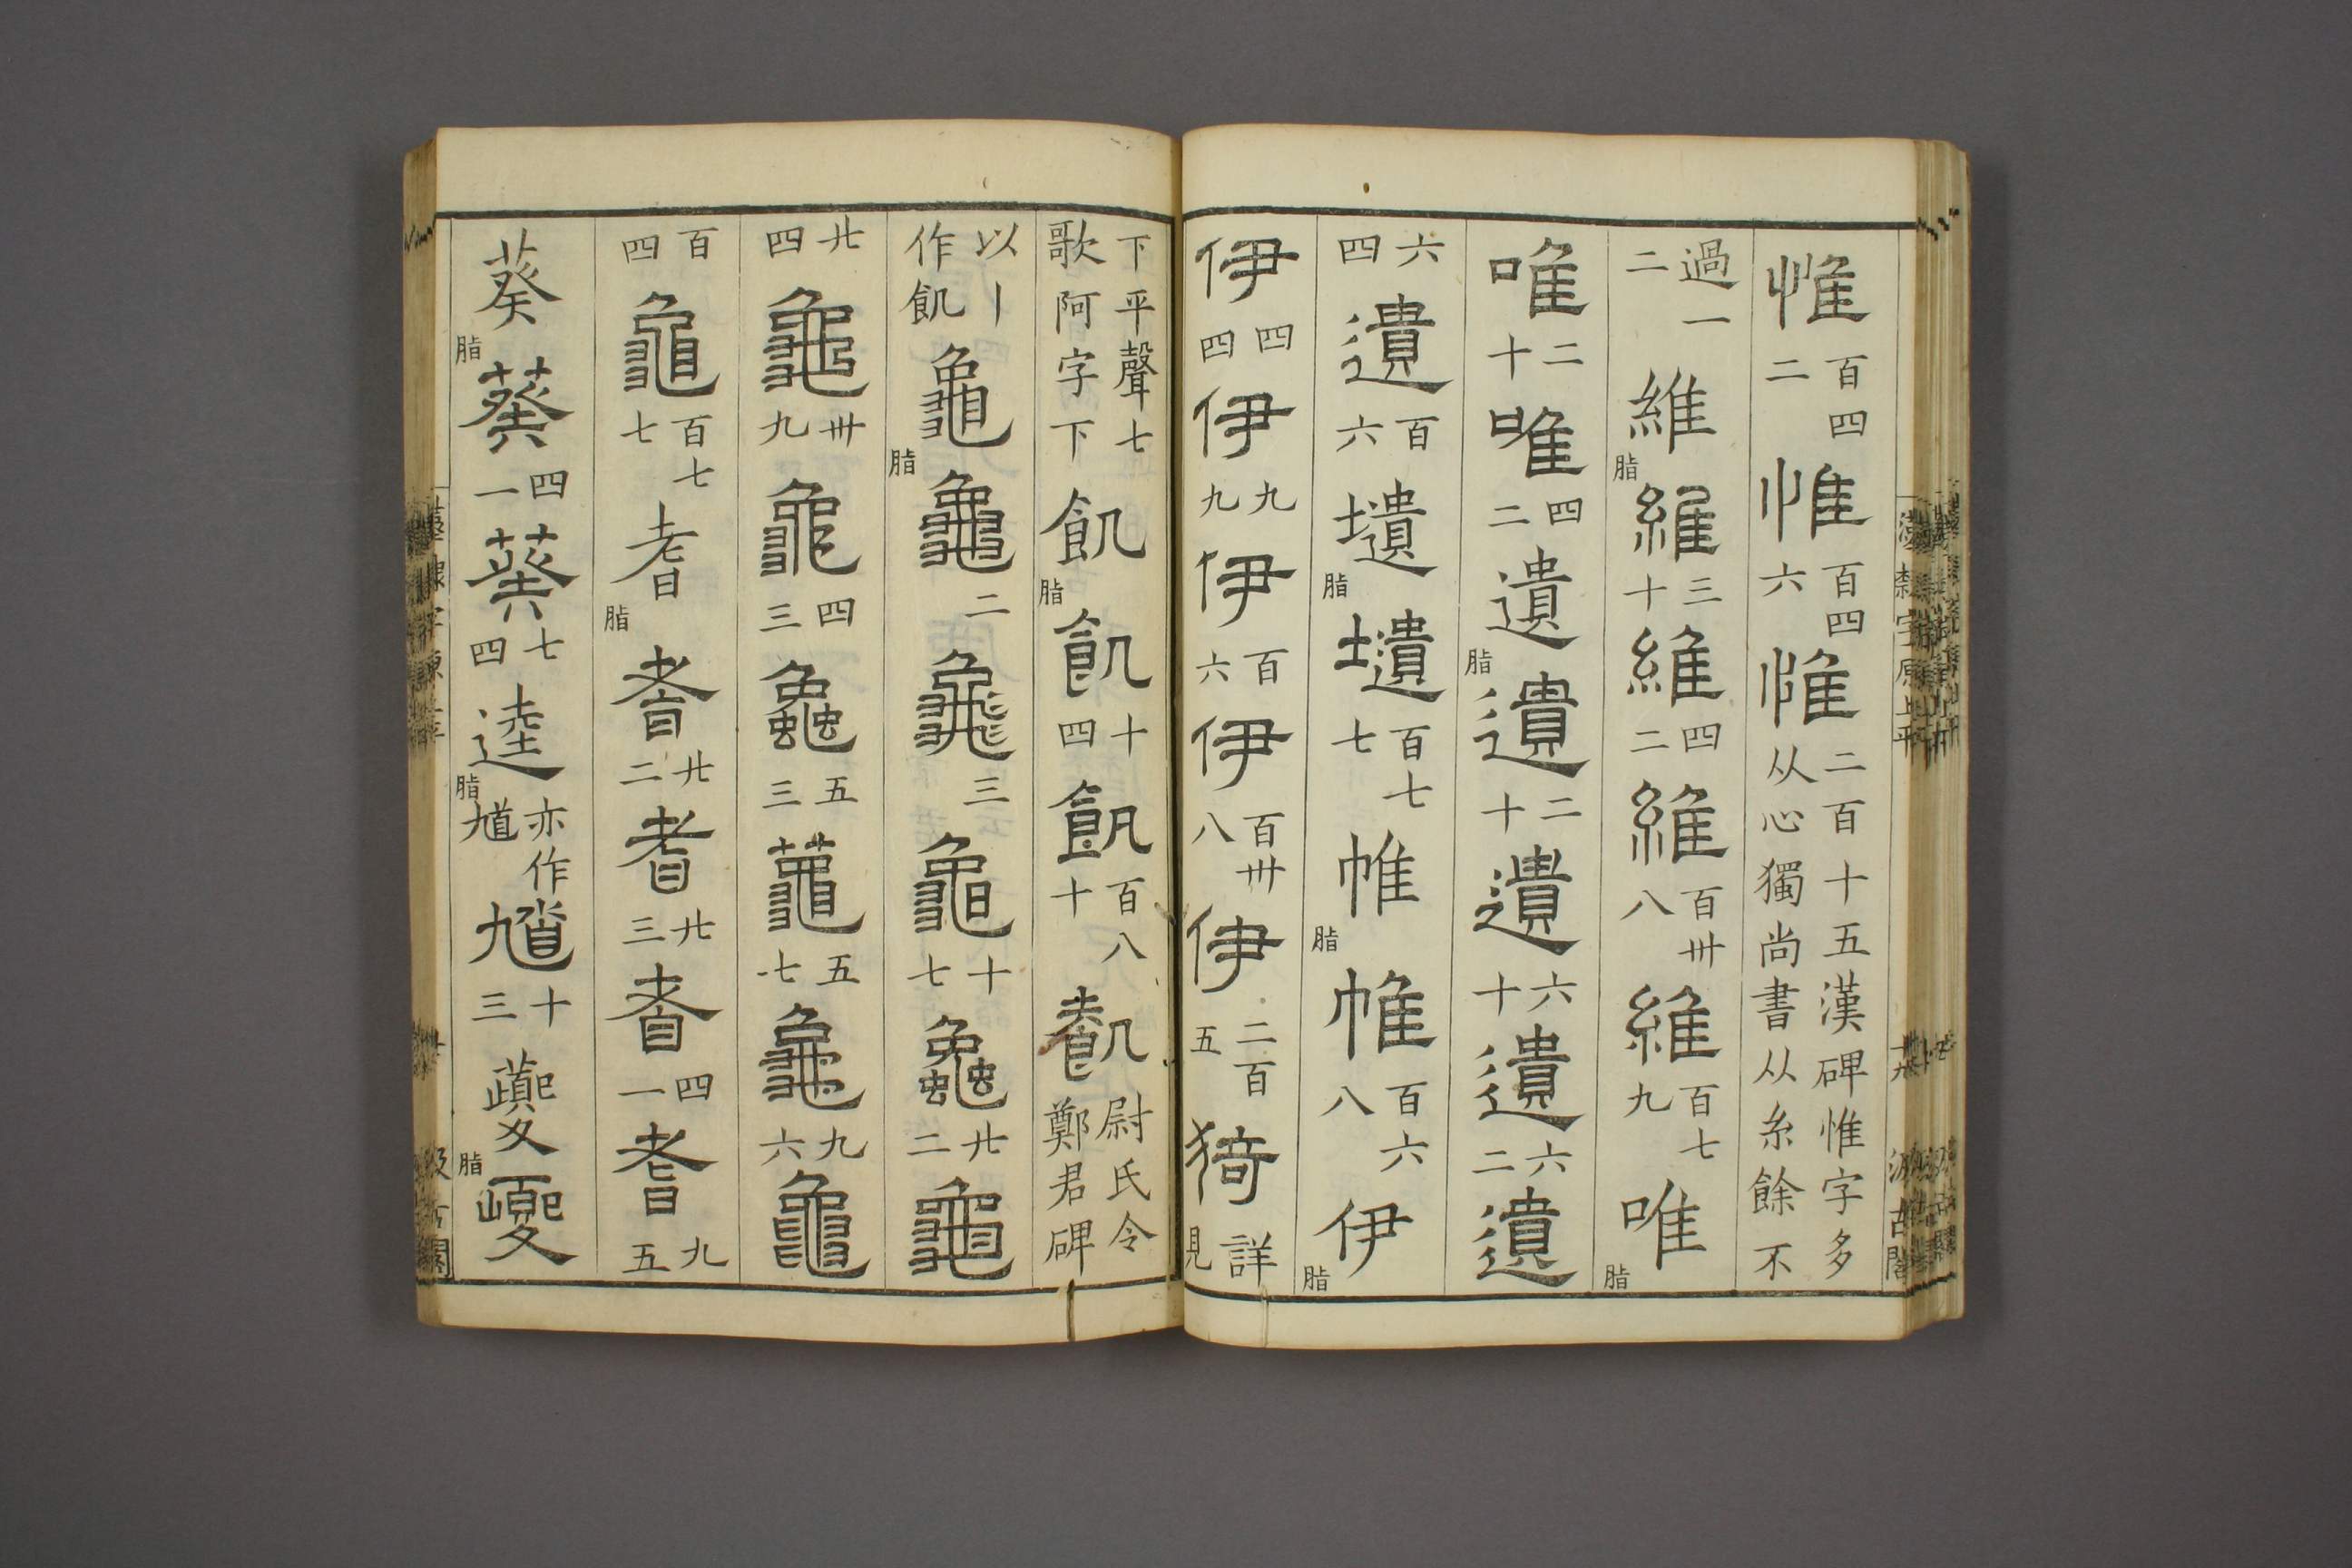 惟百四二惟百四六惟二百十五漢碑惟字多从心獨尚書从糸餘不
過一二維脂維三十維四二維百卅八維百七九唯脂
唯二十唯四二遺脂遺二十遺六十遺六二遺
六四遺百六壝脂壝百七七帷脂帷百六八伊脂
伊四四伊九九伊百六伊百卅八伊二百五猗詳見
下平聲七歌阿字下飢脂飢十四飢百八十飢尉氏令鄭君碑
以丨作飢龜脂龜二龜三龜十七龜廿二龜
廿四龜卅九龜四三龜五三龜五七龜九六龜
百四龜百七七耆脂耆廿二耆廿三耆四一耆九五
葵脂葵四一葵七四逵脂亦作馗馗十三夔脂夔
漢隸字原上平
汲古閣